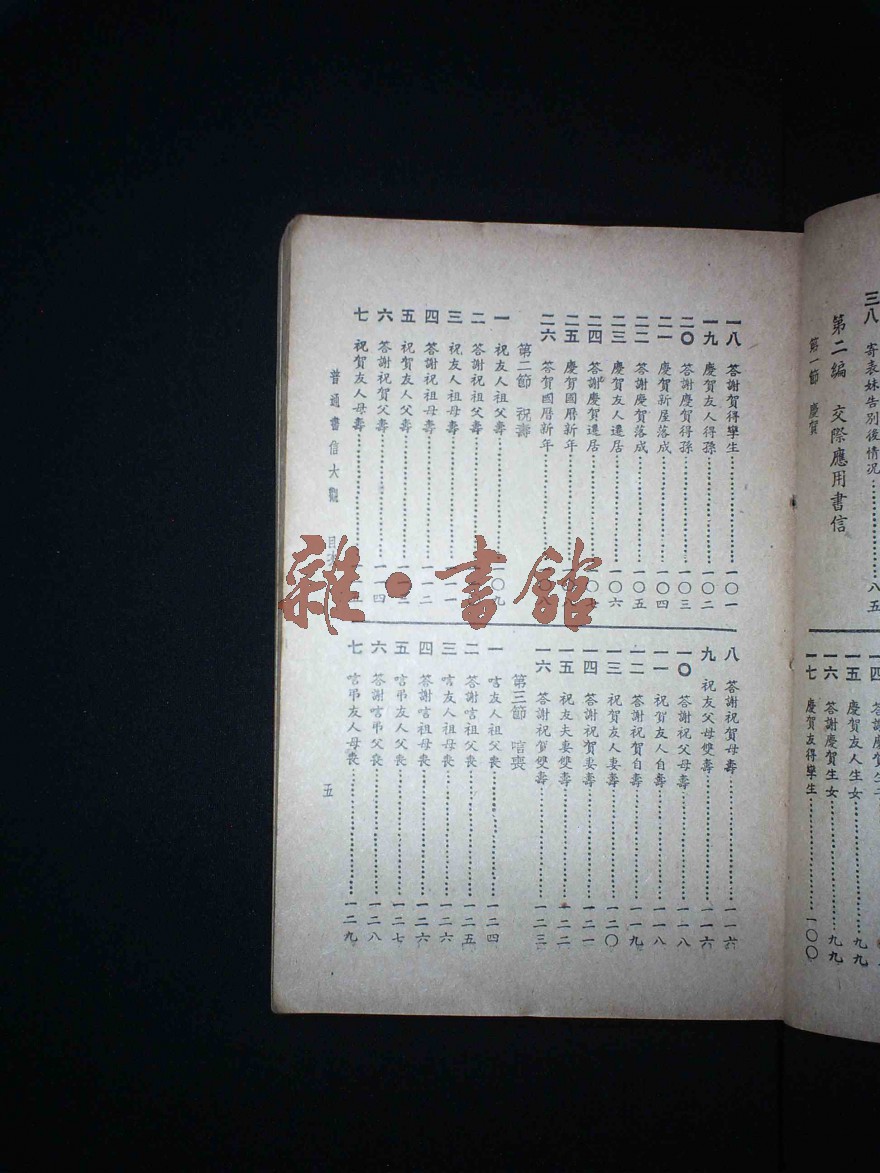 三八 寄表妹告別後情况 八五
第二編 交際應用書信
第一節 慶賀
一四 答謝慶賀生子
一五 慶賀友人生女 九九
一六 答謝慶賀生女 九九
一七 慶賀友得孿生 一〇〇
一八 答謝賀得孿生 一〇一
一九 慶賀友人得孫 一〇二
二〇 答謝慶賀得孫 一〇三
二一 慶賀新屋落成 一〇四
二二 答謝慶賀落成 一〇五
二三 慶賀友人遷居 一〇六
二四 答謝慶賀遷居 一〇七
二五 慶賀國曆新年
二六 答賀國曆新年
第二節 祝壽
一 祝友人祖父壽 一〇九
二 答謝祝祖父壽
三 祝友人祖母壽 一一一
四 答謝祝祖母壽 一一二
五 祝賀友人父壽 一一三
六 答謝祝賀父壽 一一四
七 祝賀友人母壽
八 答謝祝賀母壽 一一六
九 祝友父母雙壽 一一六
一〇 答謝祝父母壽 一一八
一一 祝賀友人自壽 一一八
一二 答謝祝賀自壽 一一九
一三 祝賀友人妻壽 一二〇
一四 答謝祝賀妻壽 一二一
一五 祝友夫妻雙壽 一二二
一六 答謝祝賀雙壽 一二三
第三節 唁喪
一 唁友人祖父喪 一二四
二 答謝唁祖父喪 一二五
三 唁友人祖母喪 一二六
四 答謝唁祖母喪 一二六
五 唁弔友人父喪 一二七
六 答謝唁弔父喪 一二八
七 唁弔友人母喪 一二九
普通書信大觀 目次
五
雜·書館